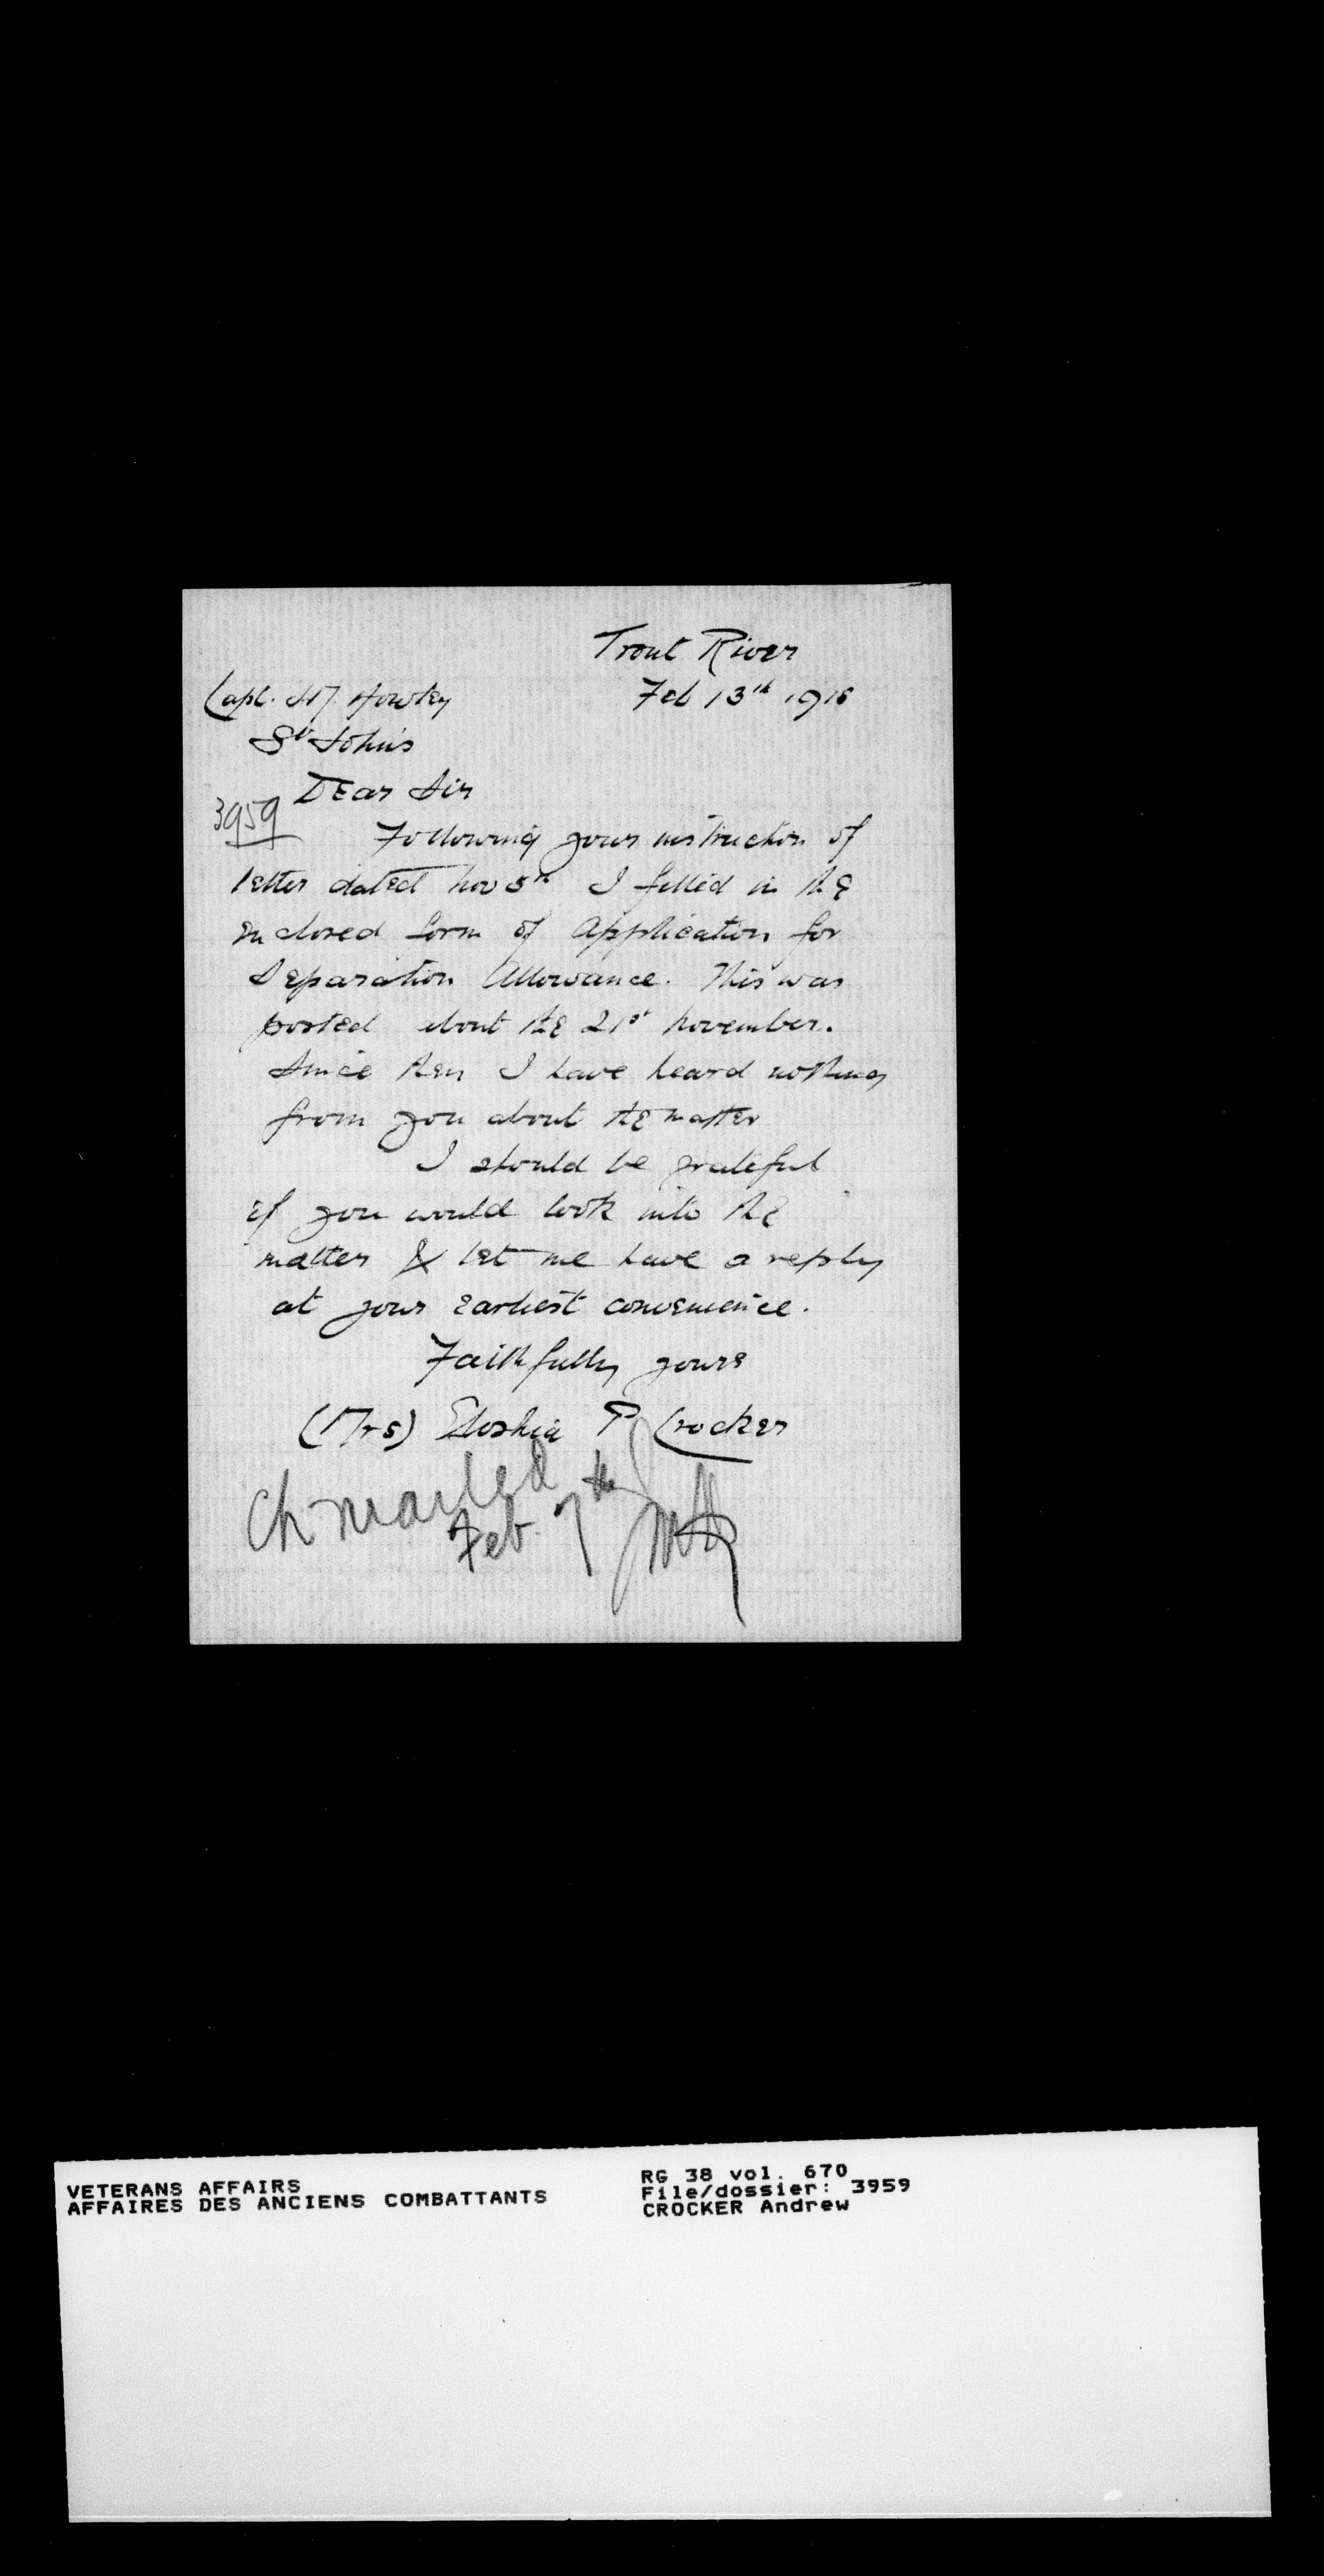 Trout River
Feb 13th 1918
Capt. Howley
St John's
Dear Sir
3959
Following your instruction of
letter dated Nov 5th I filled in the
enclosed form of Application for
Separation Allowance. This was
posted about the 21st November.
Since then I have heard nothing
from you about the matter
I should be grateful
if you would look into the
matter & let me have a reply
at your earliest convenience.
Faithfully yours
(Mrs) P Crocker
Ch mailed
Feb. 7th
VETERANS AFFAIRS
AFFAIRES DES ANCIENS COMBATTANTS
RG 38 vol. 670
File/dossier: 3959
CROCKER Andrew